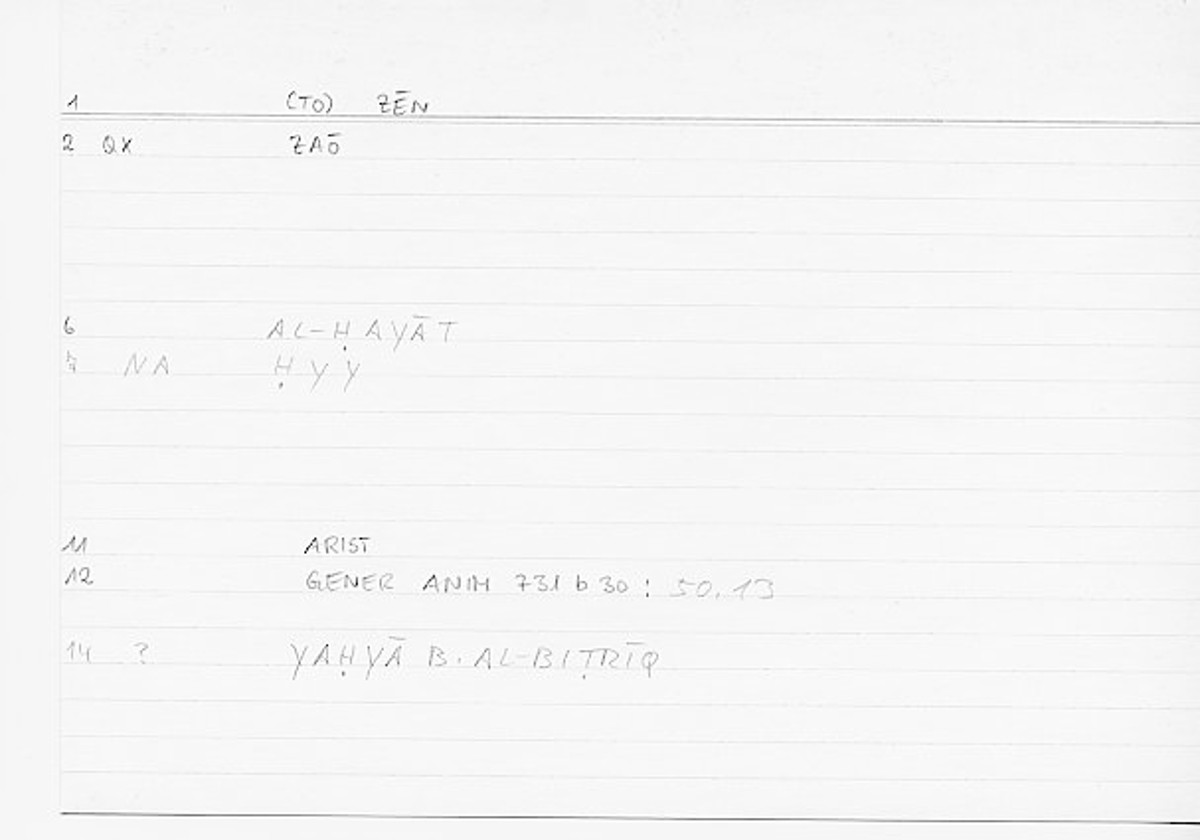 1 (TO) ZĒN
2 QX ZAŌ
6 AL-ḤAYĀT
7 NA ḤYY
11 ARIST
12 GENER ANIM 731 b 30 : 50.13
14 ? YAḤYĀ B. AL-BIṬRĪQ